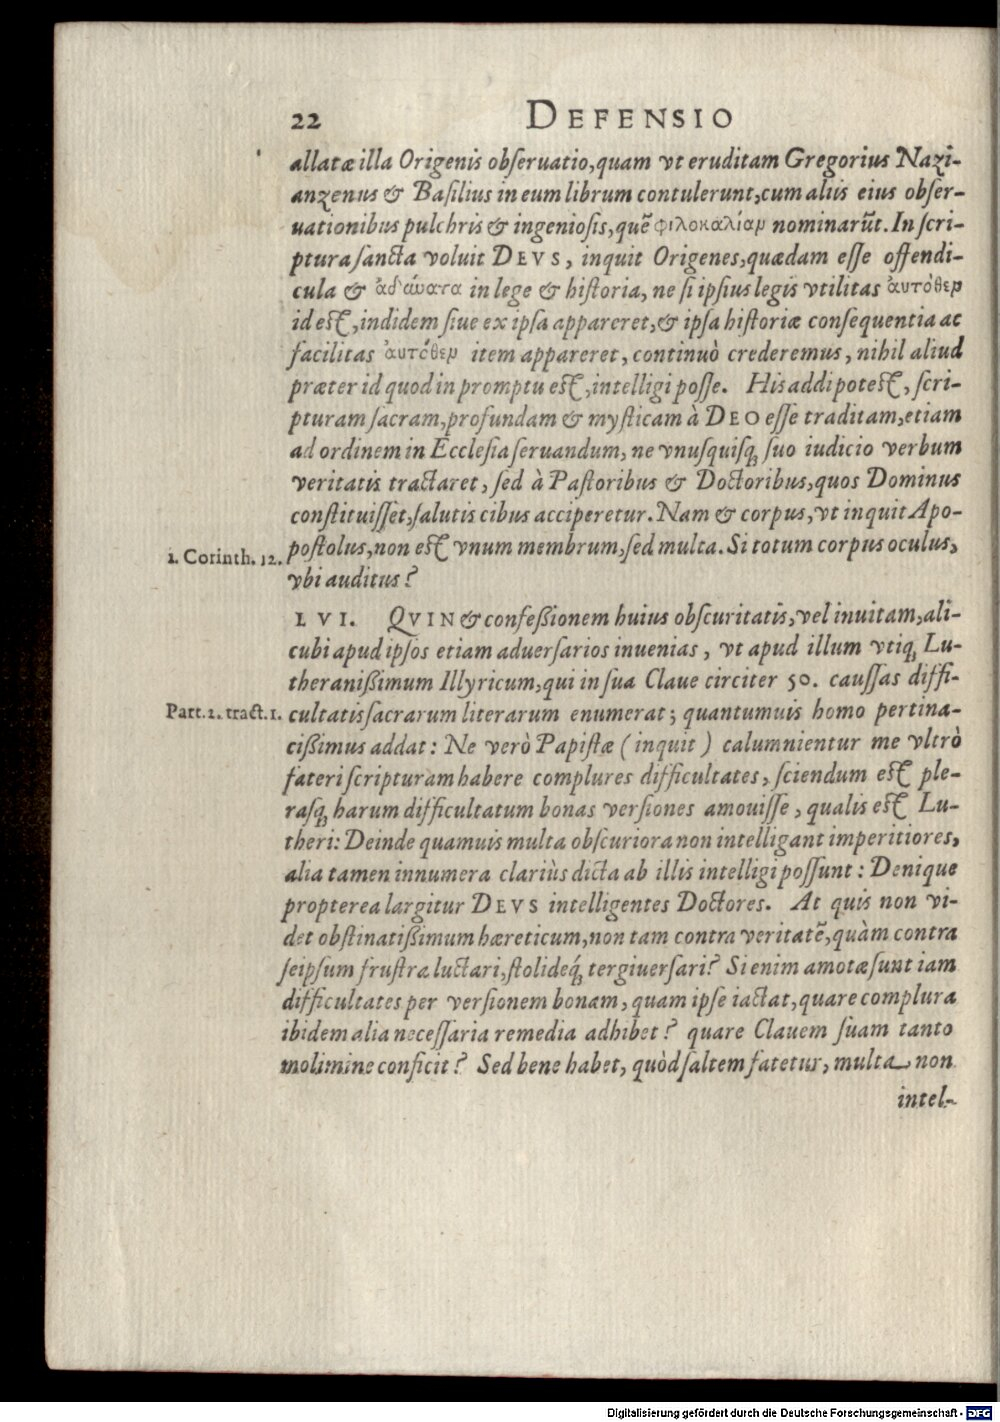 22 DEFENSIO
allatæ illa Origenis obſeruatio, quam vt eruditam Gregorius Nazi-
anzenus & Baſilius in eum librum contulerunt, cum aliis eius obſer-
uationibus pulchris & ingenioſis, quẽ φιλοκαλίαμ nominarũt. In ſcri-
ptura ſancta voluit DEVS, inquit Origenes, quædam eſſe offendi-
cula & ἀδ'ύνατα in lege & hiſtoria, ne ſi ipſius legis vtilitas ἀυτὸθεμ
id eſt, indidem ſiue ex ipſa appareret, & ipſa hiſtoriæ conſequentia ac
facilitas ἀυτόθεμ item appareret, continuò crederemus, nihil aliud
præter id quod in promptu eſt, intelligi poſſe. His addi poteſt, ſcri-
pturam ſacram, profundam & myſticam à DEO eſſe traditam, etiam
ad ordinem in Eccleſia ſeruandum, ne vnuſquiſq; ſuo iudicio verbum
veritatis tractaret, ſed à Paſtoribus & Doctoribus, quos Dominus
conſtituiſſet, ſalutis cibus acciperetur. Nam & corpus, vt inquit Apo-
1. Corinth. 12. poſtolus, non eſt vnum membrum, ſed multa. Si totum corpus oculus,
vbi auditus?
LVI. QVIN & confeßionem huius obſcuritatis, vel inuitam, ali-
cubi apud ipſos etiam aduerſarios inuenias, vt apud illum vtiq; Lu-
theranißimum Illyricum, qui in ſua Claue circiter 50. cauſſas diffi-
Part. 2. tract. 1. cultatis ſacrarum literarum enumerat; quantumuis homo pertina-
cißimus addat: Ne verò Papiſtæ (inquit) calumnientur me vltrò
fateri ſcripturam habere complures difficultates, ſciendum eſt ple-
raſq; harum difficultatum bonas verſiones amouiſſe, qualis eſt Lu-
theri: Deinde quamuis multa obſcuriora non intelligant imperitiores,
alia tamen innumera clariùs dicta ab illis intelligi poſſunt: Denique
propterea largitur DEVS intelligentes Doctores. At quis non vi-
det obſtinatißimum hæreticum, non tam contra veritatẽ, quàm contra
ſeipſum fruſtra luctari, ſtolideq́; tergiuerſari? Si enim amotæ ſunt iam
difficultates per verſionem bonam, quam ipſe iactat, quare complura
ibidem alia neceſſaria remedia adhibet? quare Clauem ſuam tanto
molimine conficit? Sed bene habet, quòd ſaltem fatetur, multa non
intel-
Digitalisierung gefördert durch die Deutsche Forschungsgemeinschaft - DFG